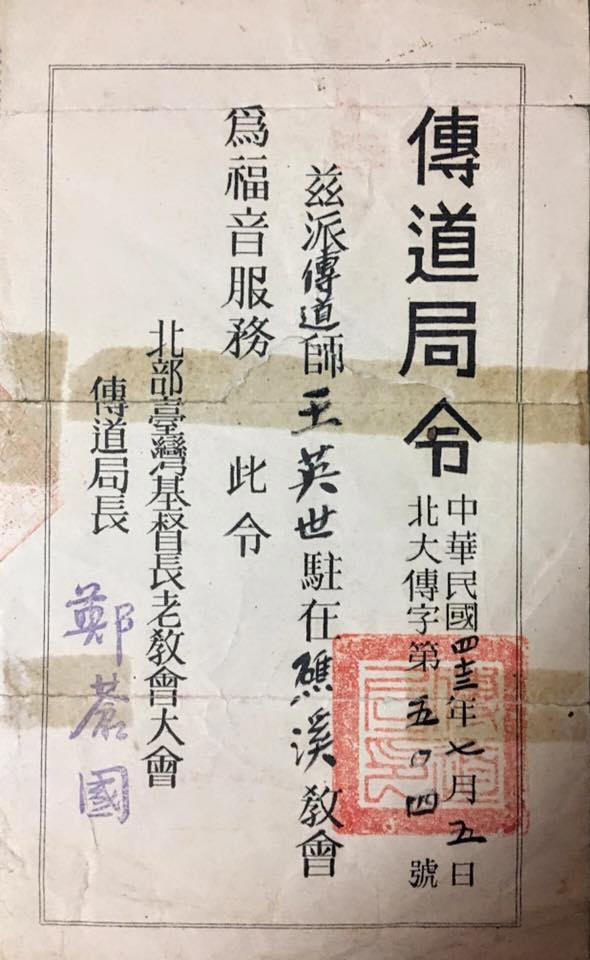 傳道局令
中華民國四十三年七月五日
北大傳字第五〇四號
茲派傳道師王英世駐在礁溪教會
為福音服務 此令
北部臺灣基督長老敎會大會
傳道局長 鄭蒼國